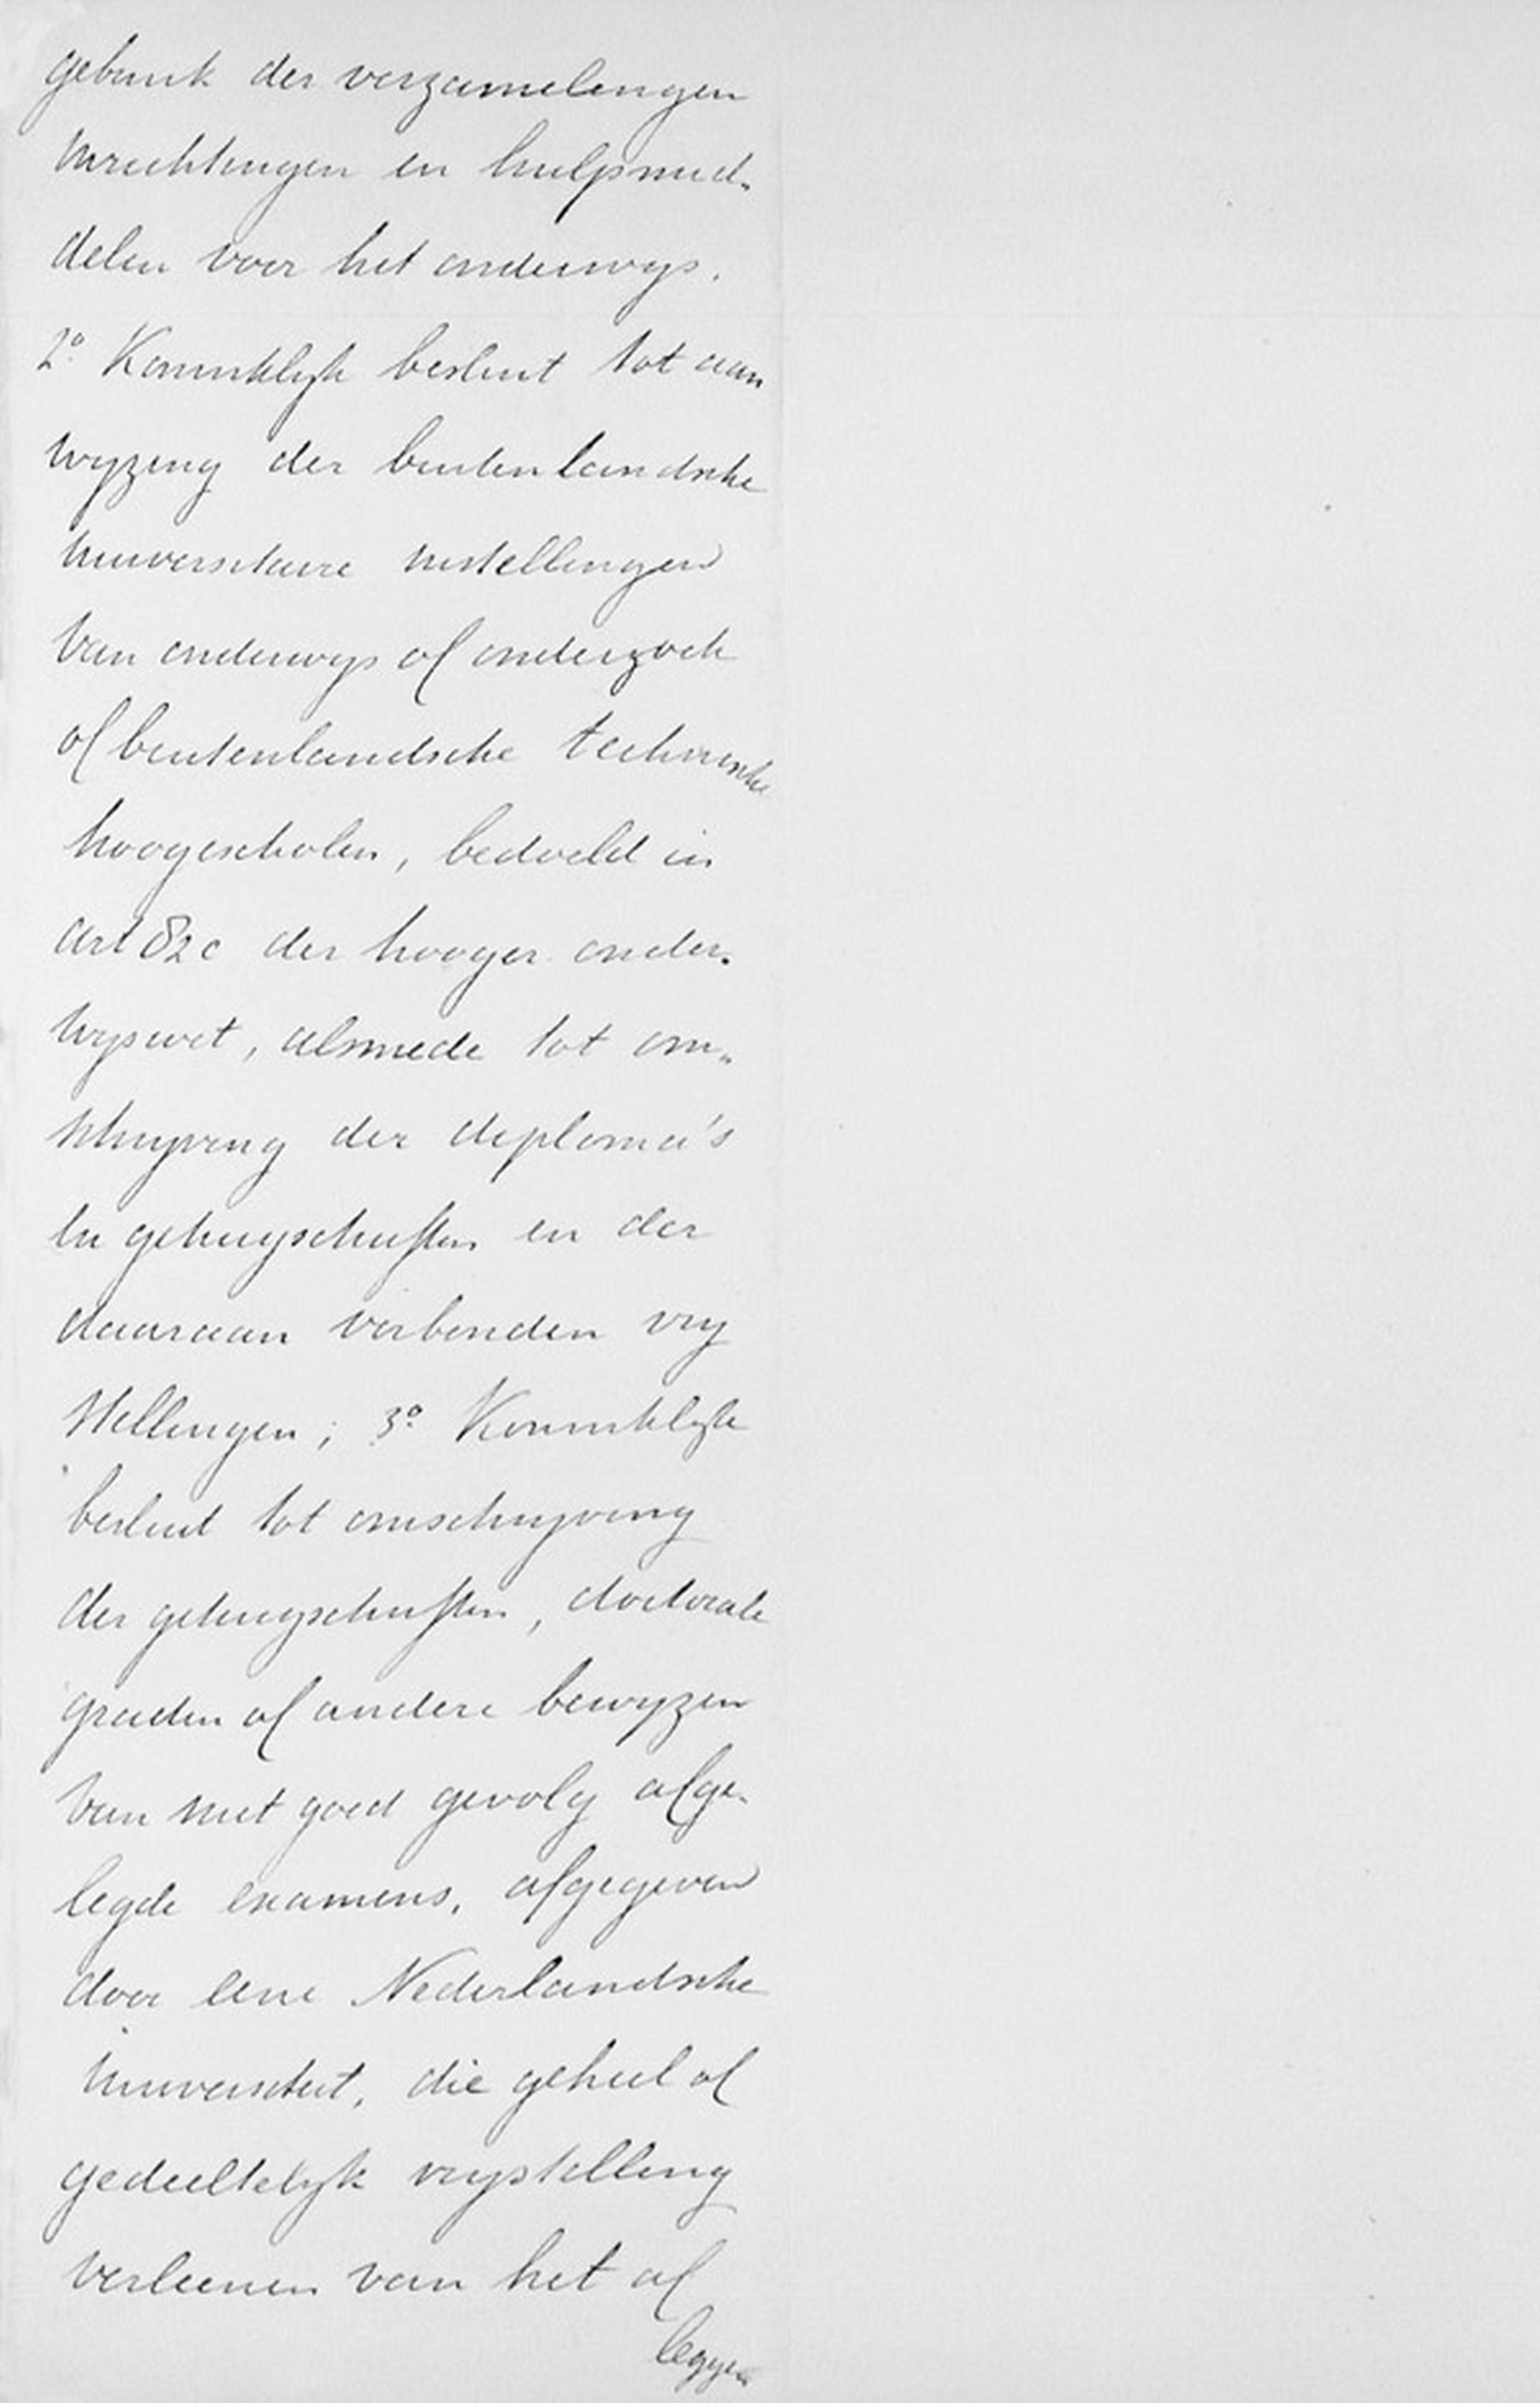 gebruik der verzamelingen
inrichtingen en hulpmid-
delen voor het onderwijs.
2° Koninklijk besluit tot aan
wijzing der buitenlandsche
universitaire instellingen
van onderwijs of onderzoek
of buitenlandsche technische
hoogescholen, bedoeld in
art 82c der hooger onder-
wijswet, alsmede tot om-
schrijving der diploma's
en getuigschriften en der
daaraan verbonden vrij
stellingen; 3° Koninklijk
besluit tot omschrijving
der getuigschriften, doctorale
graden of andere bewijzen
van met goed gevolg afge-
legde examens, afgegeven
door eene Nederlandsche
universiteit, die geheel of
gedeeltelijk vrijstelling
verleenen van het af
leggen